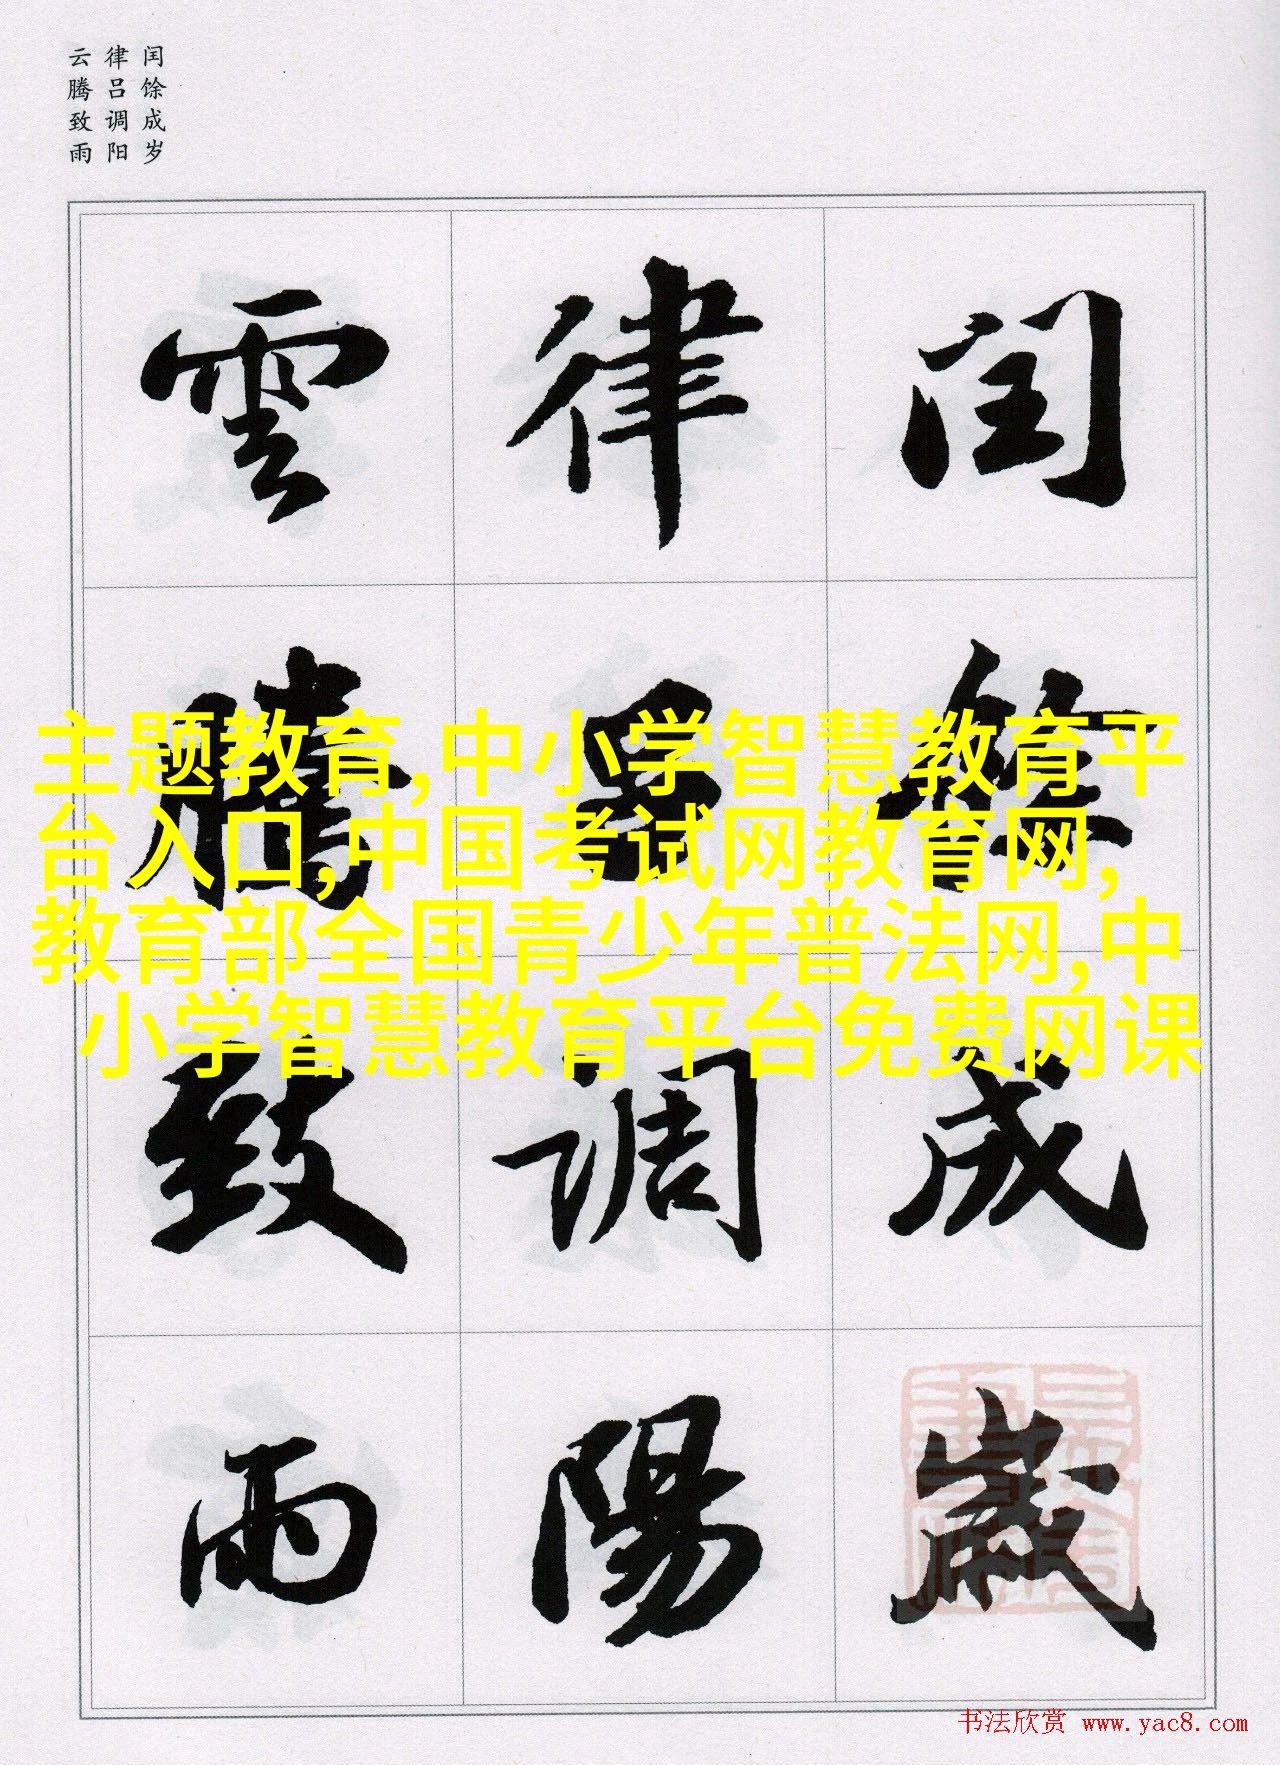 闰馀成岁
律吕调阳
云腾致雨
閏餘成歲
律吕調陽
雲騰致雨
主题教育,中小学智慧教育平
台入口,中国考试网教育网,
教育部全国青少年普法网,中
小学智慧教育平台免费网课
书法欣赏 www.yac8.com